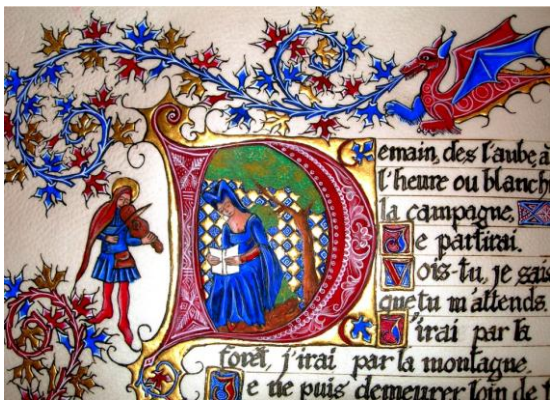 Demain, des l'aube, à
l'heure ou blanch
la campagne,
Je partirai.
Vois-tu, je sais
que tu m'attends.
J'irai par la
forêt, j'irai par la montagne.
Je ne puis demeurer loin de